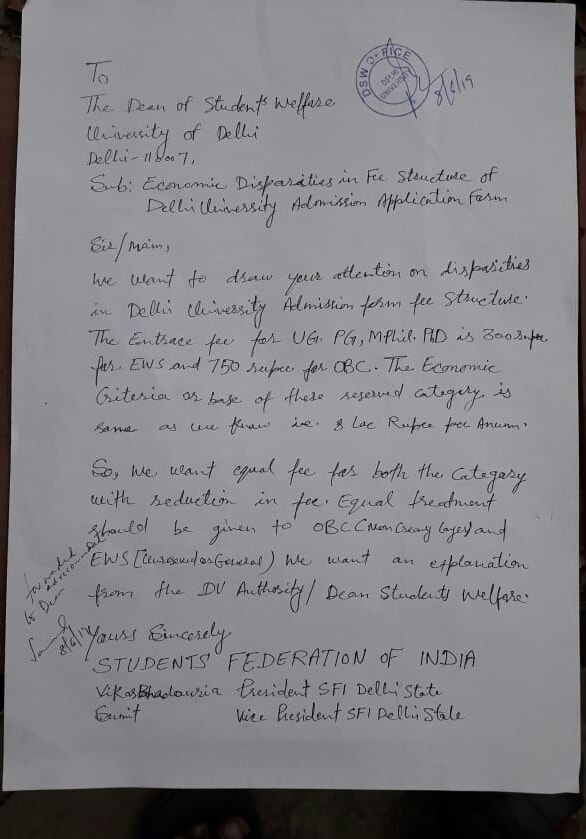 To
The Dean of Students Welfare
University of Delhi
Delhi - 110007,
Sub: Economic Disparities in Fee Structure of
Delhi University Admission Application Form
DSW OFFICE
DELHI UNIVERSITY
8/6/19
Sir/Maim,
We want to draw your attention on disparities
in Delhi University Admission form fee Structure.
The Entrace fee for UG. PG, MPhil. PhD is 300 rupee
for EWS and 750 rupee for OBC. The Economic
Criteria or base of these reserved category is
same as we know i.e. 8 Lac Rupee per Annum.
So, We want equal fee for both the Category
with reduction in fee. Equal treatment
should be given to OBC (Non Creamy layer) and
EWS [Unreserved or General) We want an explanation
from the DU Authority/ Dean Students Welfare.
forwarded
to Dean
8/6/19
Yours Sincerely
STUDENTS' FEDERATION OF INDIA
Vikas Bhadauria President SFI Delhi State
Sumit Vice President SFI Delhi State